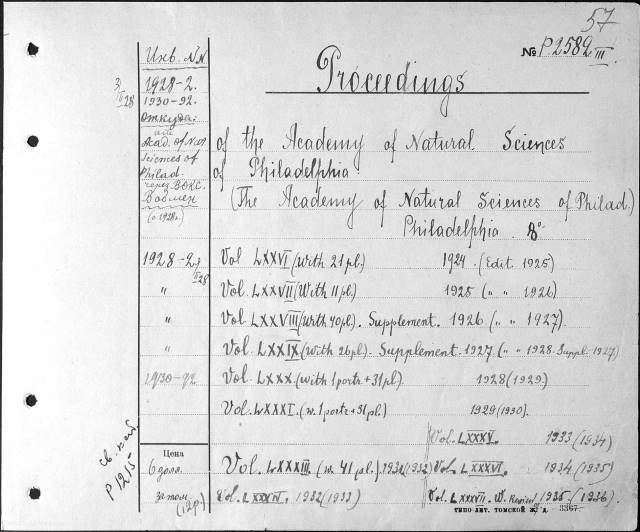 57
№ P2582 III
Инв. NN
Proceedings
3/II 28
1928-2.
1930-92.
откуда:
Acad. of Nat.
Sciences of
Philad.
через ВОКС.
Обмен
(с 1928г.)
of the Academy of Natural Sciences
of Philadelphia.
(The Academy of Natural Sciences of Philad.)
Philadelphia. 8°
1928-2 3/II 28 Vol LXXVI (with 21 pl.) 1924. (Edit. 1925)
" Vol. LXXVII (With 11 pl.) 1925 („ „ 1926)
" Vol LXXVIII (with 40 pl.). Supplement. 1926 („ „ 1927).
" Vol. LXXIX (with 26 pl). Supplement. 1927. („ „ 1928. Suppl. 1927)
1930-92 Vol. LXXX (with 1 portr + 31 pl.) 1928 (1929.)
Vol. LXXXI. (w. 1 portr + 51 pl.) 1929 (1930).
Vol. LXXXV. 1933 (1934)
Св. кат.
P 1215
Цена
6 долл. Vol. LXXXIII (w. 41 pl.). 1931 (1932) Vol. LXXXVI. 1934 (1935)
за том. (12 р.) Vol. LXXXIV. 1932 (1933) Vol. LXXXVII. 1935 (1936)
ТИПО-ЛИТ. ТОМСКОЙ Ж. Д. 3367.